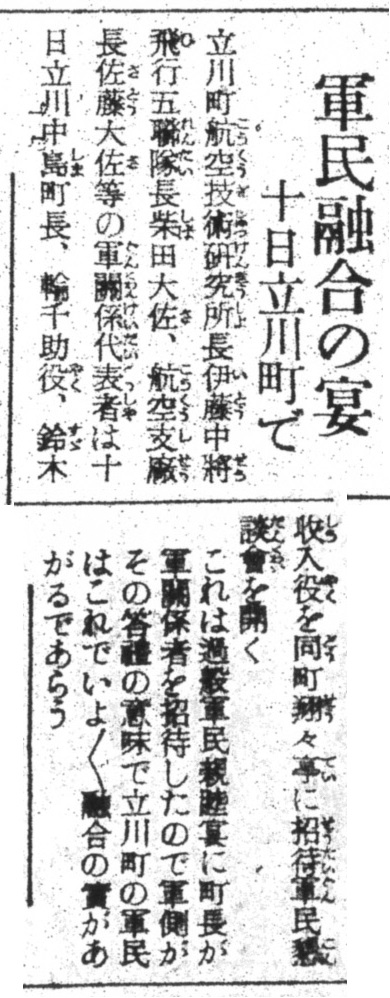 軍民融合の宴
十日立川町で
立川町航空技術研究所長伊藤中將
飛行五聯隊長柴田大佐、航空支廠
長佐藤大佐等の軍關係代表者は十
日立川中島町長、輪千助役、鈴木
收入役を同町翔々亭に招待軍民懇
談會を開く
これは過般軍民親睦宴に町長が
軍關係者を招待したので軍側が
その答禮の意味で立川町の軍民
はこれでいよ〱融合の實があ
がるであらう